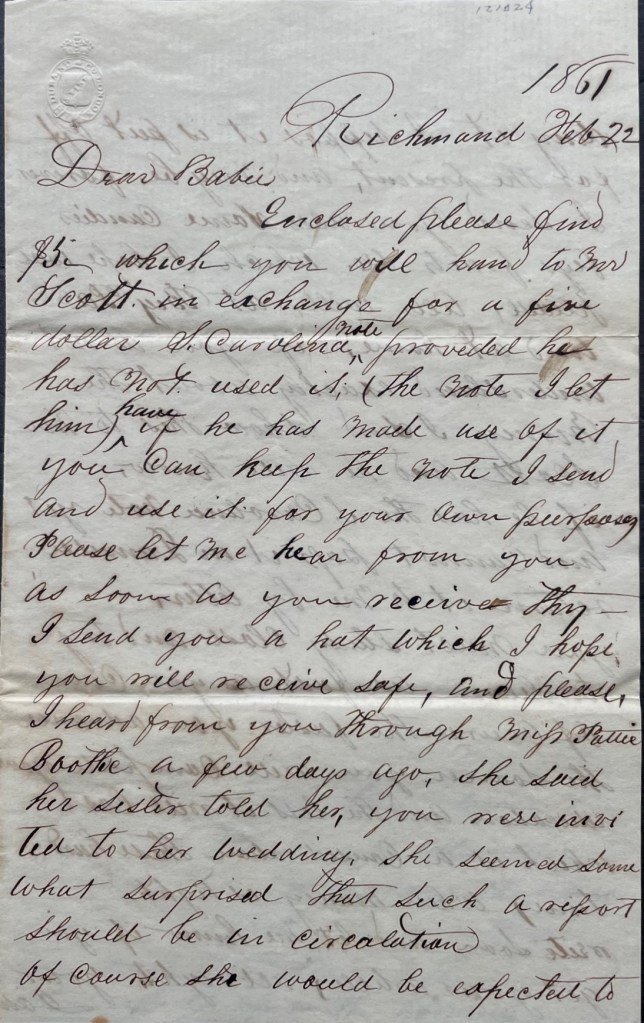 121024
1861
Richmond Feb 22
Dear Babie
Enclosed please find
$5 which you will hand to Mr
Scott in exchange for a five
dollar S. Carolina note provided he
has not used it, (the note I let
him have) if he has made use of it
you can keep the note I send
and use it for your own purposes
Please let me hear from you
as soon as you receive thy—
I send you a hat which I hope
you will receive safe, and please,
I heard from you through Miss Pattie
Boothe a few days ago, she said
her sister told her, you were invi
ted to her wedding, she seemed some
what surprised that such a report
should be in circulation
of course she would be expected to